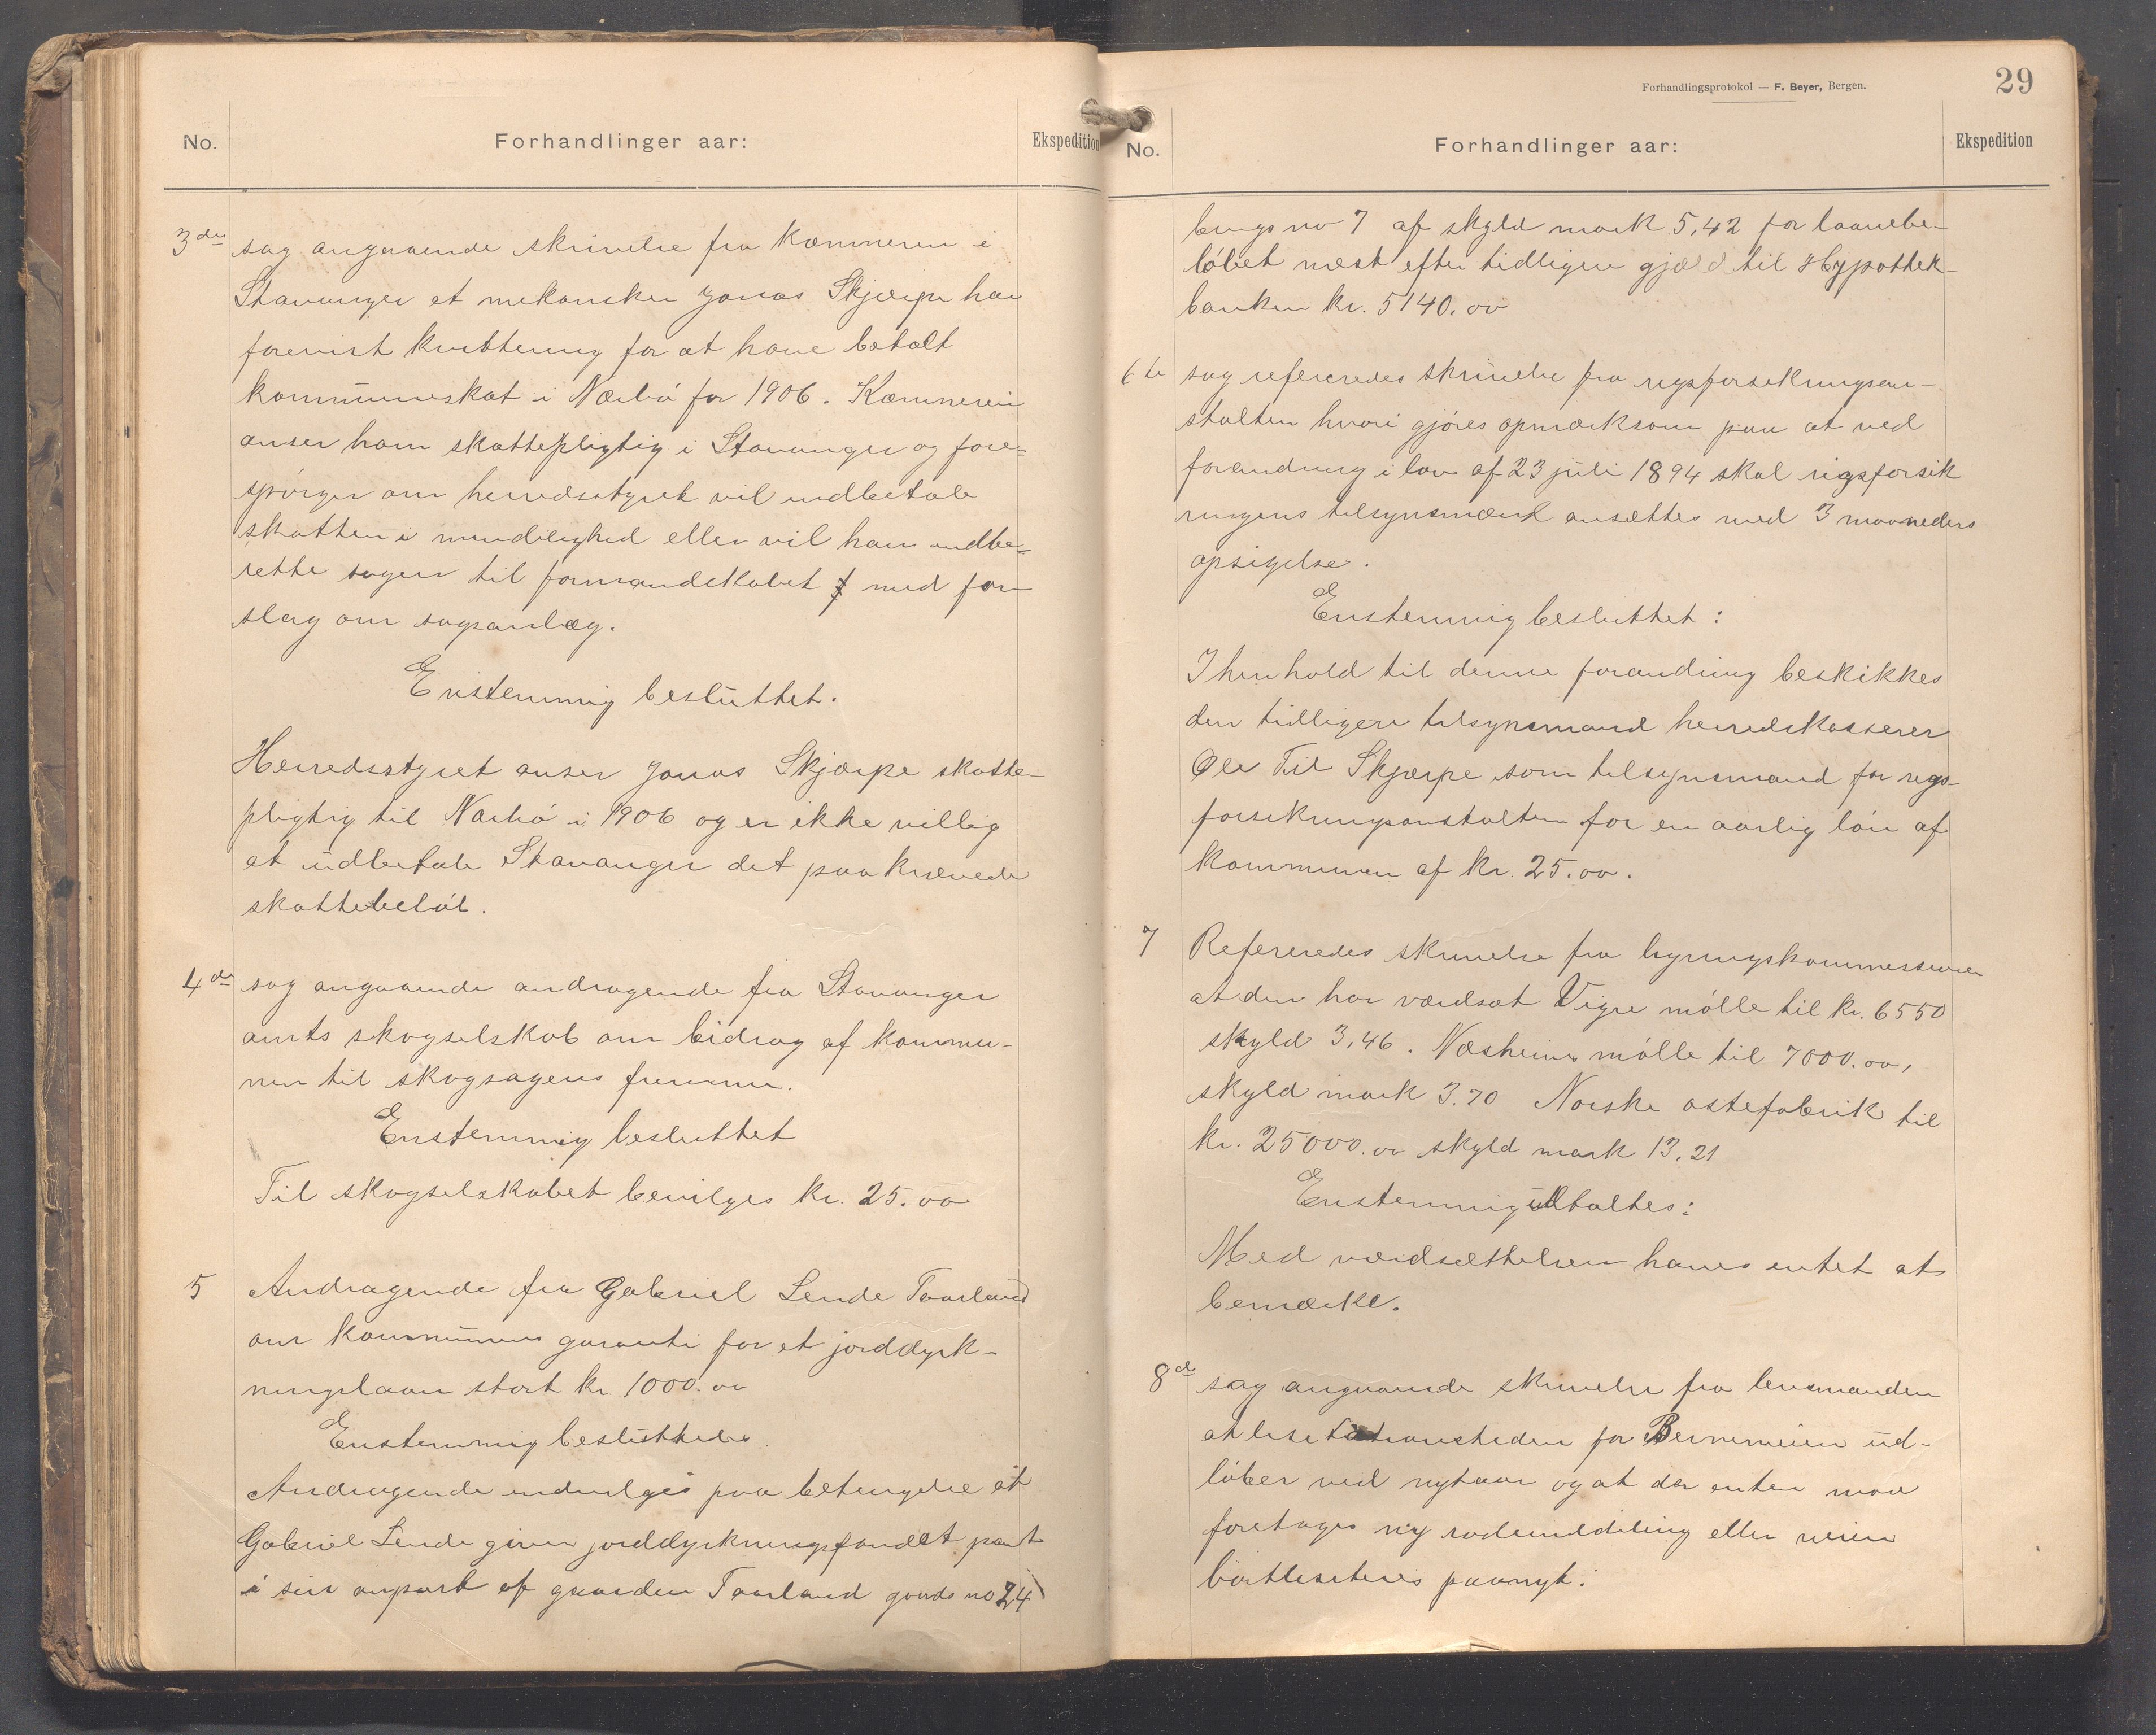 No.
Forhandlinger aar:
Ekspedition
3die sag angaaende skrivelse fra Kæmneren i
Stavanger at mekaniker Jonas Skjærpe har
forevist kvittering for at have betalt
kommuneskat i Nærbø for 1906. Kæmneren
anser ham skattepligtig i Stavanger og fore=
spörger om herredsstyret vil indbetale
skatten i mindelighed eller vil han indbe=
rette sagen til formandskabet med for
slag om saganlæg.
Enstemmig besluttet.
Herredsstyret anser Jonas Skjærpe skatte-
pligtig til Nærbö i 1906 og er ikke villig
at udbetale Stavanger det paakrævede
skattebelöb.
4de sag angaaende andragende fra Stavanger
amts skogselskab om bidrag af kommu-
nen til skogsagens fremme.
Enstemmig besluttet
Til skogselskabet bevilges kr. 25.00
5 Andragende fra Gabriel Lende Taarland
om kommunens garanti for et jorddyrk-
ningslaan stort kr. 1000.00
Enstemmig besluttedes
Andragende indvilges paa betingelse at
Gabriel Lende giver jorddyrkningsfondet pant
i sin anpart af gaarden Taarland gaards no 24
Forhandlingsprotokol — F. Beyer, Bergen.
29
No.
Forhandlinger aar:
Ekspedition
brugs no 7 af skyld mark 5,42 for laanebe-
löbet næst efter tidligere gjæld til Hypothek-
banken kr. 5140.00
6te sag refereredes skrivelse fra rigsforsikringsan-
stalten hvori gjöres opmærksom paa at ved
forandring i lov af 23 juli 1894 skal rigsforsik
ringens tilsynsmænd ansættes med 3 maaneders
opsigelse.
Enstemmig besluttet:
I henhold til denne forandring beskikkes
den tidligere tilsynsmand herredskasserer
Ole Skjærpe som tilsynsmand for rigs-
forsikringsanstalten for en aarlig lön af
kommunen af kr. 25.00.
7 Refereredes skrivelse fra ligningskommissionen
at den har værdsat Vigre mölle til kr. 6550
skyld 3,46. Næsheim mölle til 7000.00,
skyld mark 3.70 Norske ostefabrik til
kr. 25000.00 skyld mark 13,21
Enstemmig udtaltes:
Med værdsættelsen haves intet at
bemærke.
8de sag angaaende skrivelse fra lensmanden
at lisitationstiden for veien ud-
löber ved nytaar og at der enten maa
foretages ny rodeinddeling eller veien
bortlisiteres paanyt.